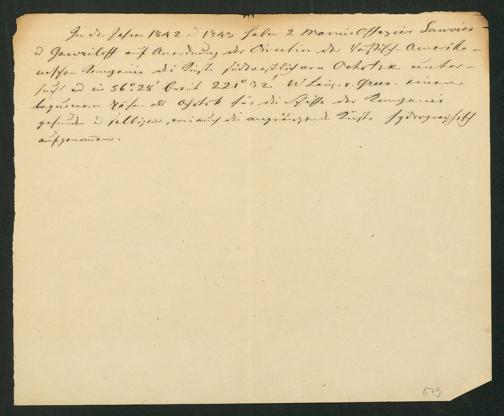 In den Jahren 1842 u 1843 haben 2 Marine Offiziere Sawoiko
u Gawriloff auf Anordnung der Direction der Russisch-Amerika-
nischen Kompanie die Küste südwestlich von Ochotsk unter-
sucht u in 56° 28' Breit 221° 32' W Läng. v. Green. einen
bequemen Hafen als Ochotsk für die Schiffe der Kompanie
gefunden u selbigen, wie auch die angränzende Küste hydrographisch
aufgenommen.
679